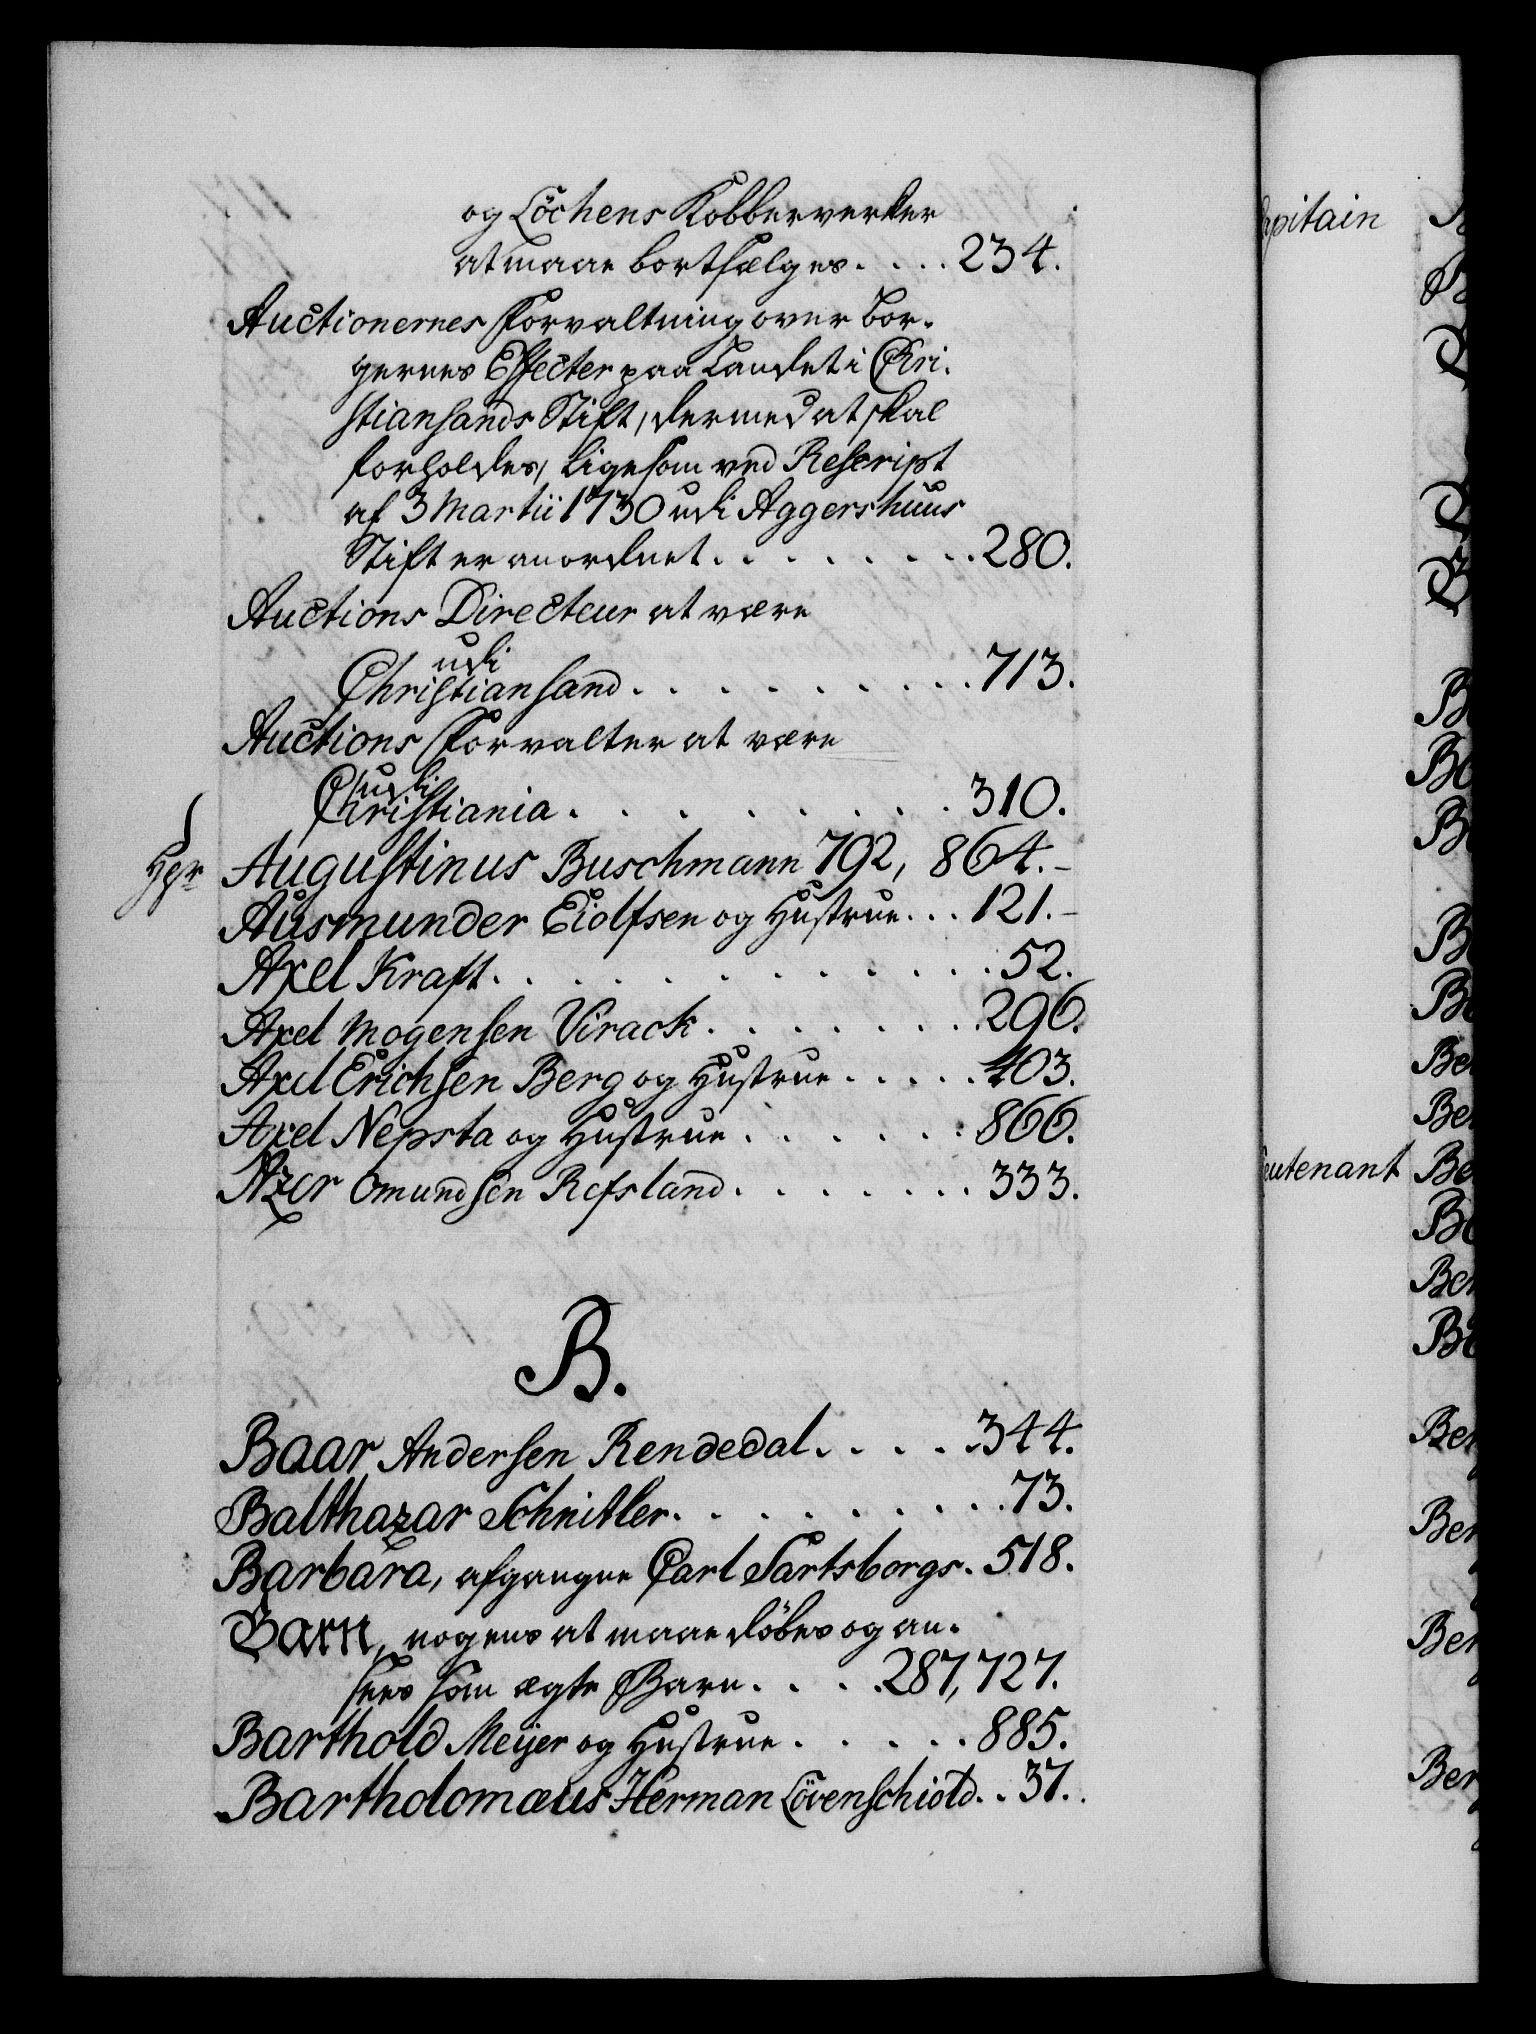 og Löchens Kobberverker
at maae bortsælges. . . . 234.
Auctionernes Forvaltning over Bor-
gernes Effecter paa Landet i Chri-
stiansands Stift, dermed at skal
forholdes, ligesom ved Rescript
af 3 Martii 1730 udi Aggershuus
Stift er anordnet. . . . . . . . 280.
Auctions Directeur at være
udi
Christiansand. . . . . . . . . 713.
Auctions Forvalter at være
udi
Christiania. . . . . . . . 310.
Hgr Augustinus Buschmann 792, 864.-
Ausmunder Eiolfsen og Hustrue. . . 121.-
Axel Kraft. . . . . . . . . . . 52.
Axel Mogensen Virack. . . . . . . 296.
Axel Erichsen Berg og Hustrue. . . . . 403.
Axel Nepsta og Hustrue. . . . . . 866.
Azer Omundsen Refsland. . . . . . . 333.
B.
Baar Andersen Rendedal. . . . . 344.
Balthazar Schnitler. . . . . . . . . 73.
Barbara, afgangne Carl Sartsborgs. 518.
Barn, nogens at maae döbes og an-
sees som ægte Barn. . . . 287, 727.
Barthold Meijer og Hustrue. . . . . 885.
Bartholomæus Herman Lövenschiold. . 37.
Capitain
Lieutenant